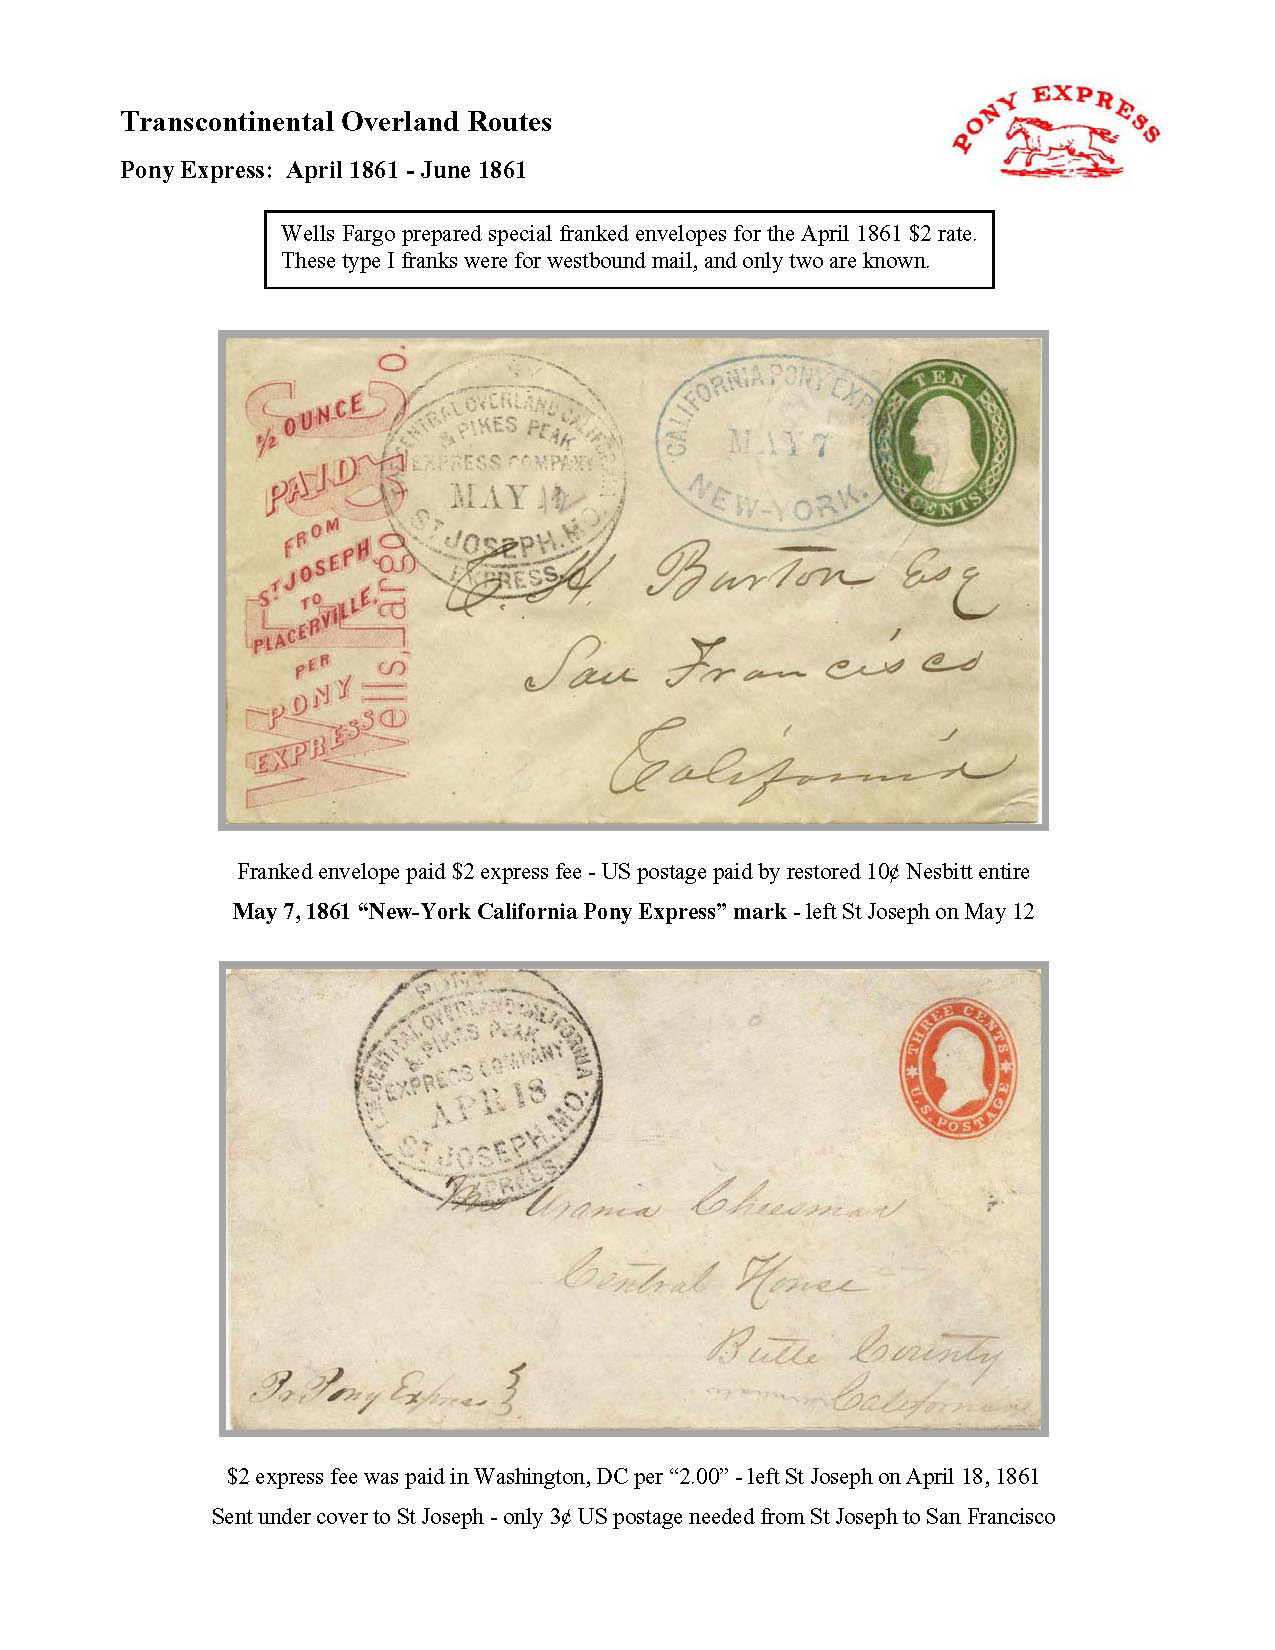 Transcontinental Overland Routes
PONY EXPRESS
Pony Express: April 1861 - June 1861
Wells Fargo prepared special franked envelopes for the April 1861 $2 rate.
These type I franks were for westbound mail, and only two are known.
½ OUNCE
PAID
FROM
ST JOSEPH
TO
PLACERVILLE.
PER
PONY
EXPRESS
Wells, Fargo & Co.
THE CENTRAL OVERLAND CALIFORNIA
& PIKES PEAK
EXPRESS COMPANY
MAY
ST JOSEPH. MO.
EXPRESS.
CALIFORNIA PONY EXPRESS
MAY 7
NEW-YORK.
TEN
CENTS
C. H. Burton Esq
San Francisco
California
Franked envelope paid $2 express fee - US postage paid by restored 10¢ Nesbitt entire
May 7, 1861 “New-York California Pony Express” mark - left St Joseph on May 12
PONY
THE CENTRAL OVERLAND CALIFORNIA
& PIKES PEAK
EXPRESS COMPANY
APR 18
ST JOSEPH. MO.
EXPRESS.
THREE CENTS
U.S. POSTAGE
Urania Cheesman
Central House
Butte County
California
Pr Pony Express
$2 express fee was paid in Washington, DC per “2.00” - left St Joseph on April 18, 1861
Sent under cover to St Joseph - only 3¢ US postage needed from St Joseph to San Francisco